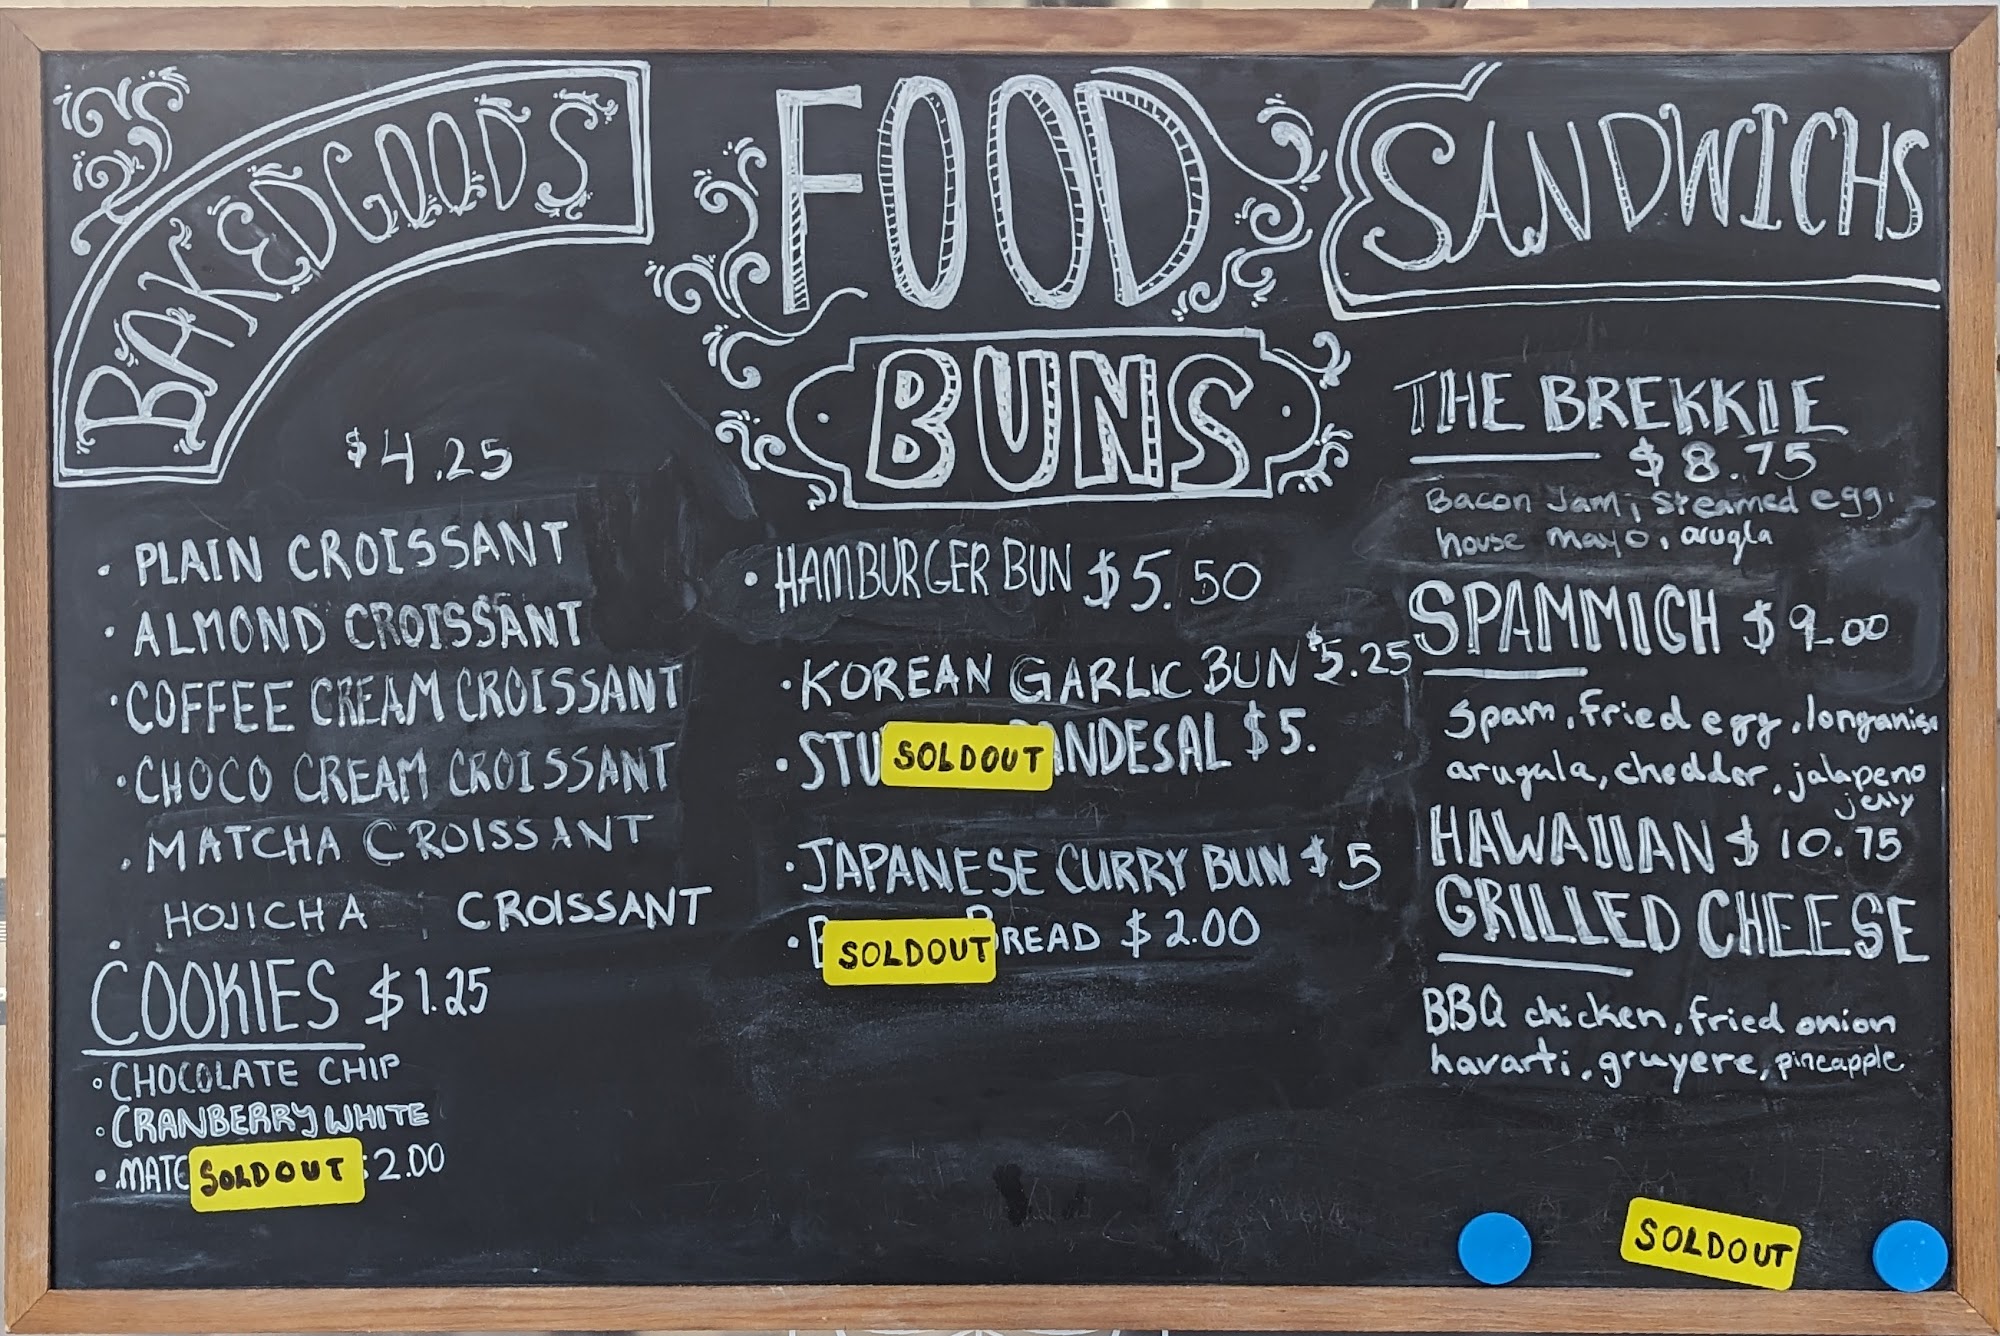 BAKED GOODS
$4.25
• PLAIN CROISSANT
• ALMOND CROISSANT
• COFFEE CREAM CROISSANT
• CHOCO CREAM CROISSANT
• MATCHA CROISSANT
• HOJICHA CROISSANT
COOKIES $1.25
• CHOCOLATE CHIP
• CRANBERRY WHITE
• MATC SOLDOUT $2.00
FOOD
BUNS
• HAMBURGER BUN $5.50
• KOREAN GARLIC BUN $5.25
• STU SOLDOUT ANDESAL $5.
• JAPANESE CURRY BUN $5
• SOLDOUT READ $2.00
SANDWICHS
THE BREKKIE
$8.75
Bacon Jam, steamed egg,
house mayo, arugla
SPAMMICH $9.00
spam, fried egg, longanisa
arugula, chedder, jalapeno
jelly
HAWAIIAN $10.75
GRILLED CHEESE
BBQ chicken, fried onion
havarti, gruyere, pineapple
SOLDOUT